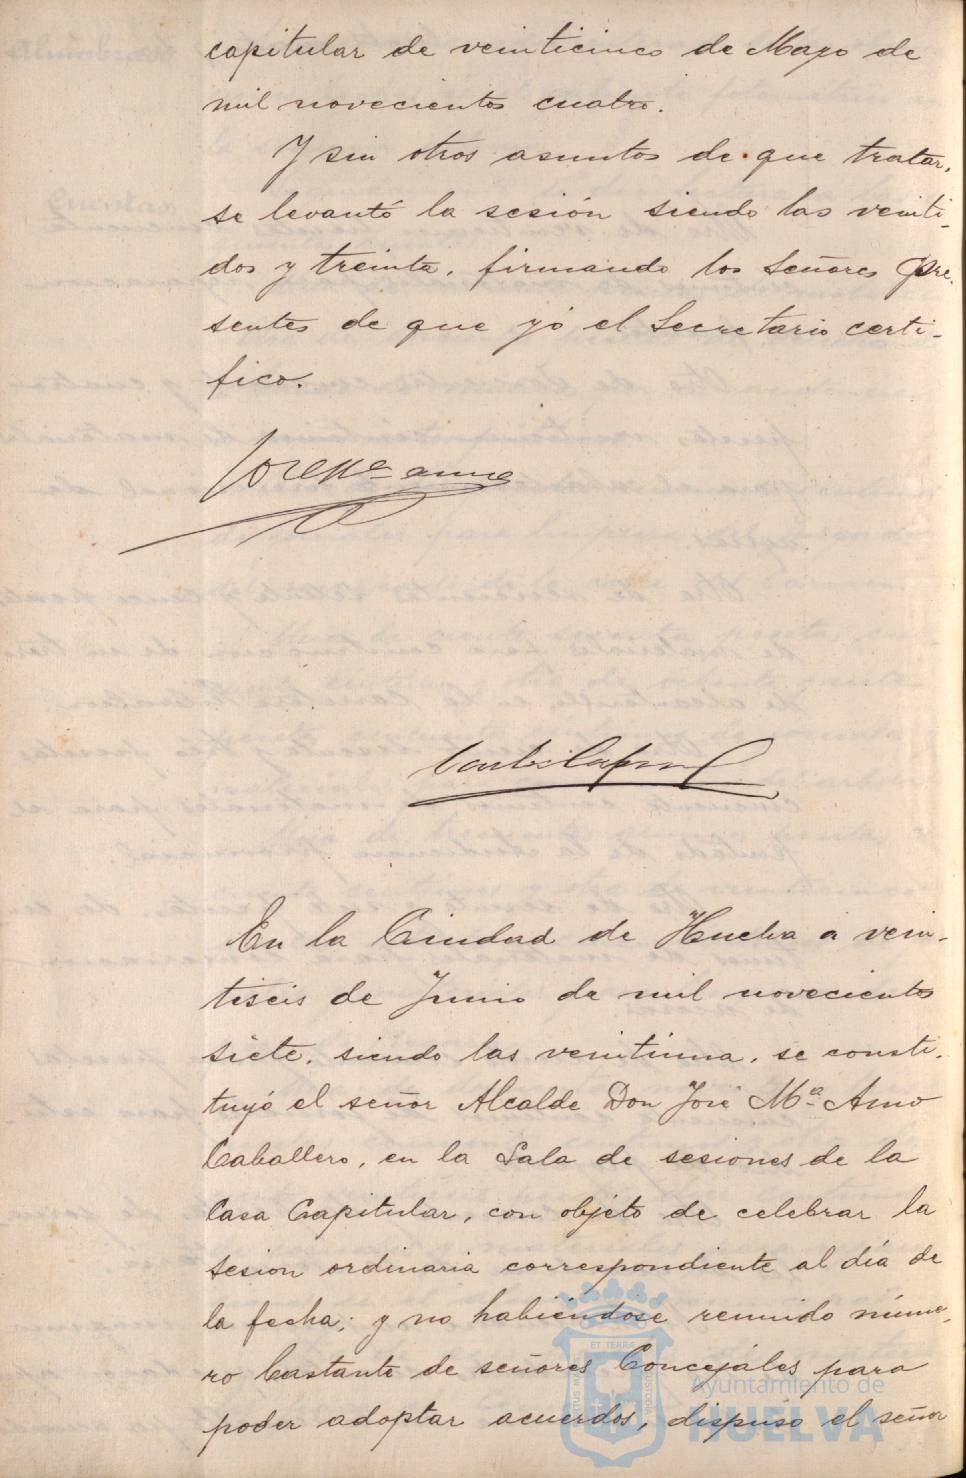 capitular de veinticinco de Mayo de
mil novecientos cuatro.
Y sin otros asuntos de que tratar,
se levantó la sesión siendo las veinti-
dos y treinta, firmando los Señores pre-
sentes de que yó el Secretario certi-
fico.
José Mª Amo
En la Ciudad de Huelva a vein-
tiseis de Junio de mil novecientos
siete, siendo las veintiuna, se consti-
tuyó el señor Alcalde Don José Mª Amo
Caballero, en la Sala de sesiones de la
Casa Capitular, con objeto de celebrar la
sesion ordinaria correspondiente al día de
la fecha; y no habiéndose reunido núme-
ro bastante de señores Concejales para
poder adoptar acuerdos, dispuso el señor
Ayuntamiento de
HUELVA